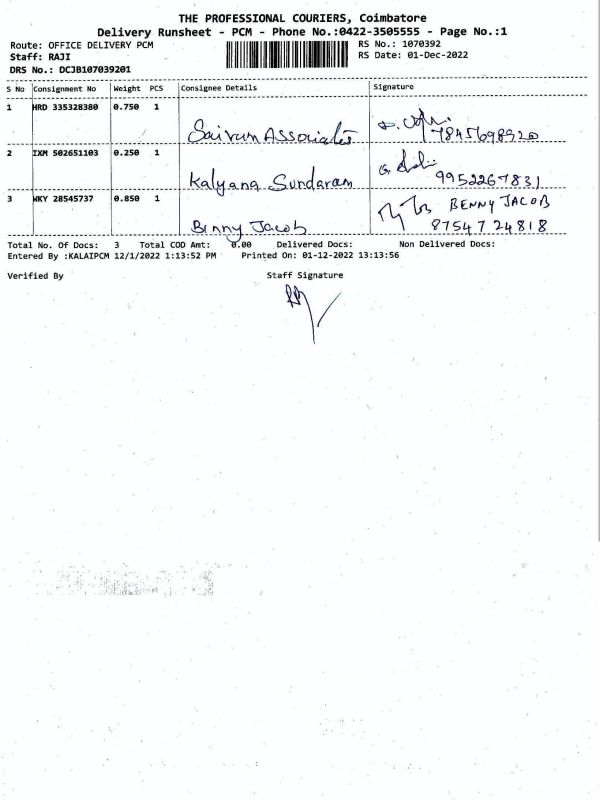 THE PROFESSIONAL COURIERS, Coimbatore
Delivery Runsheet - PCM - Phone No.:0422-3505555 - Page No.:1
Route: OFFICE DELIVERY PCM RS No.: 1070392
Staff: RAJI RS Date: 01-Dec-2022
DRS No.: DCJB107039201
S No Consignment No Weight PCS Consignee Details Signature
1 HRD 335328380 0.750 1
Sairam Associates 7845698920
2 IXM 502651103 0.250 1
Kalyana Sundaram 9952267831
3 WKY 28545737 0.850 1 BENNY JACOB
Binny Jacob 8754724818
Total No. Of Docs: 3 Total COD Amt: 0.00 Delivered Docs: Non Delivered Docs:
Entered By :KALAIPCM 12/1/2022 1:13:52 PM Printed On: 01-12-2022 13:13:56
Verified By Staff Signature